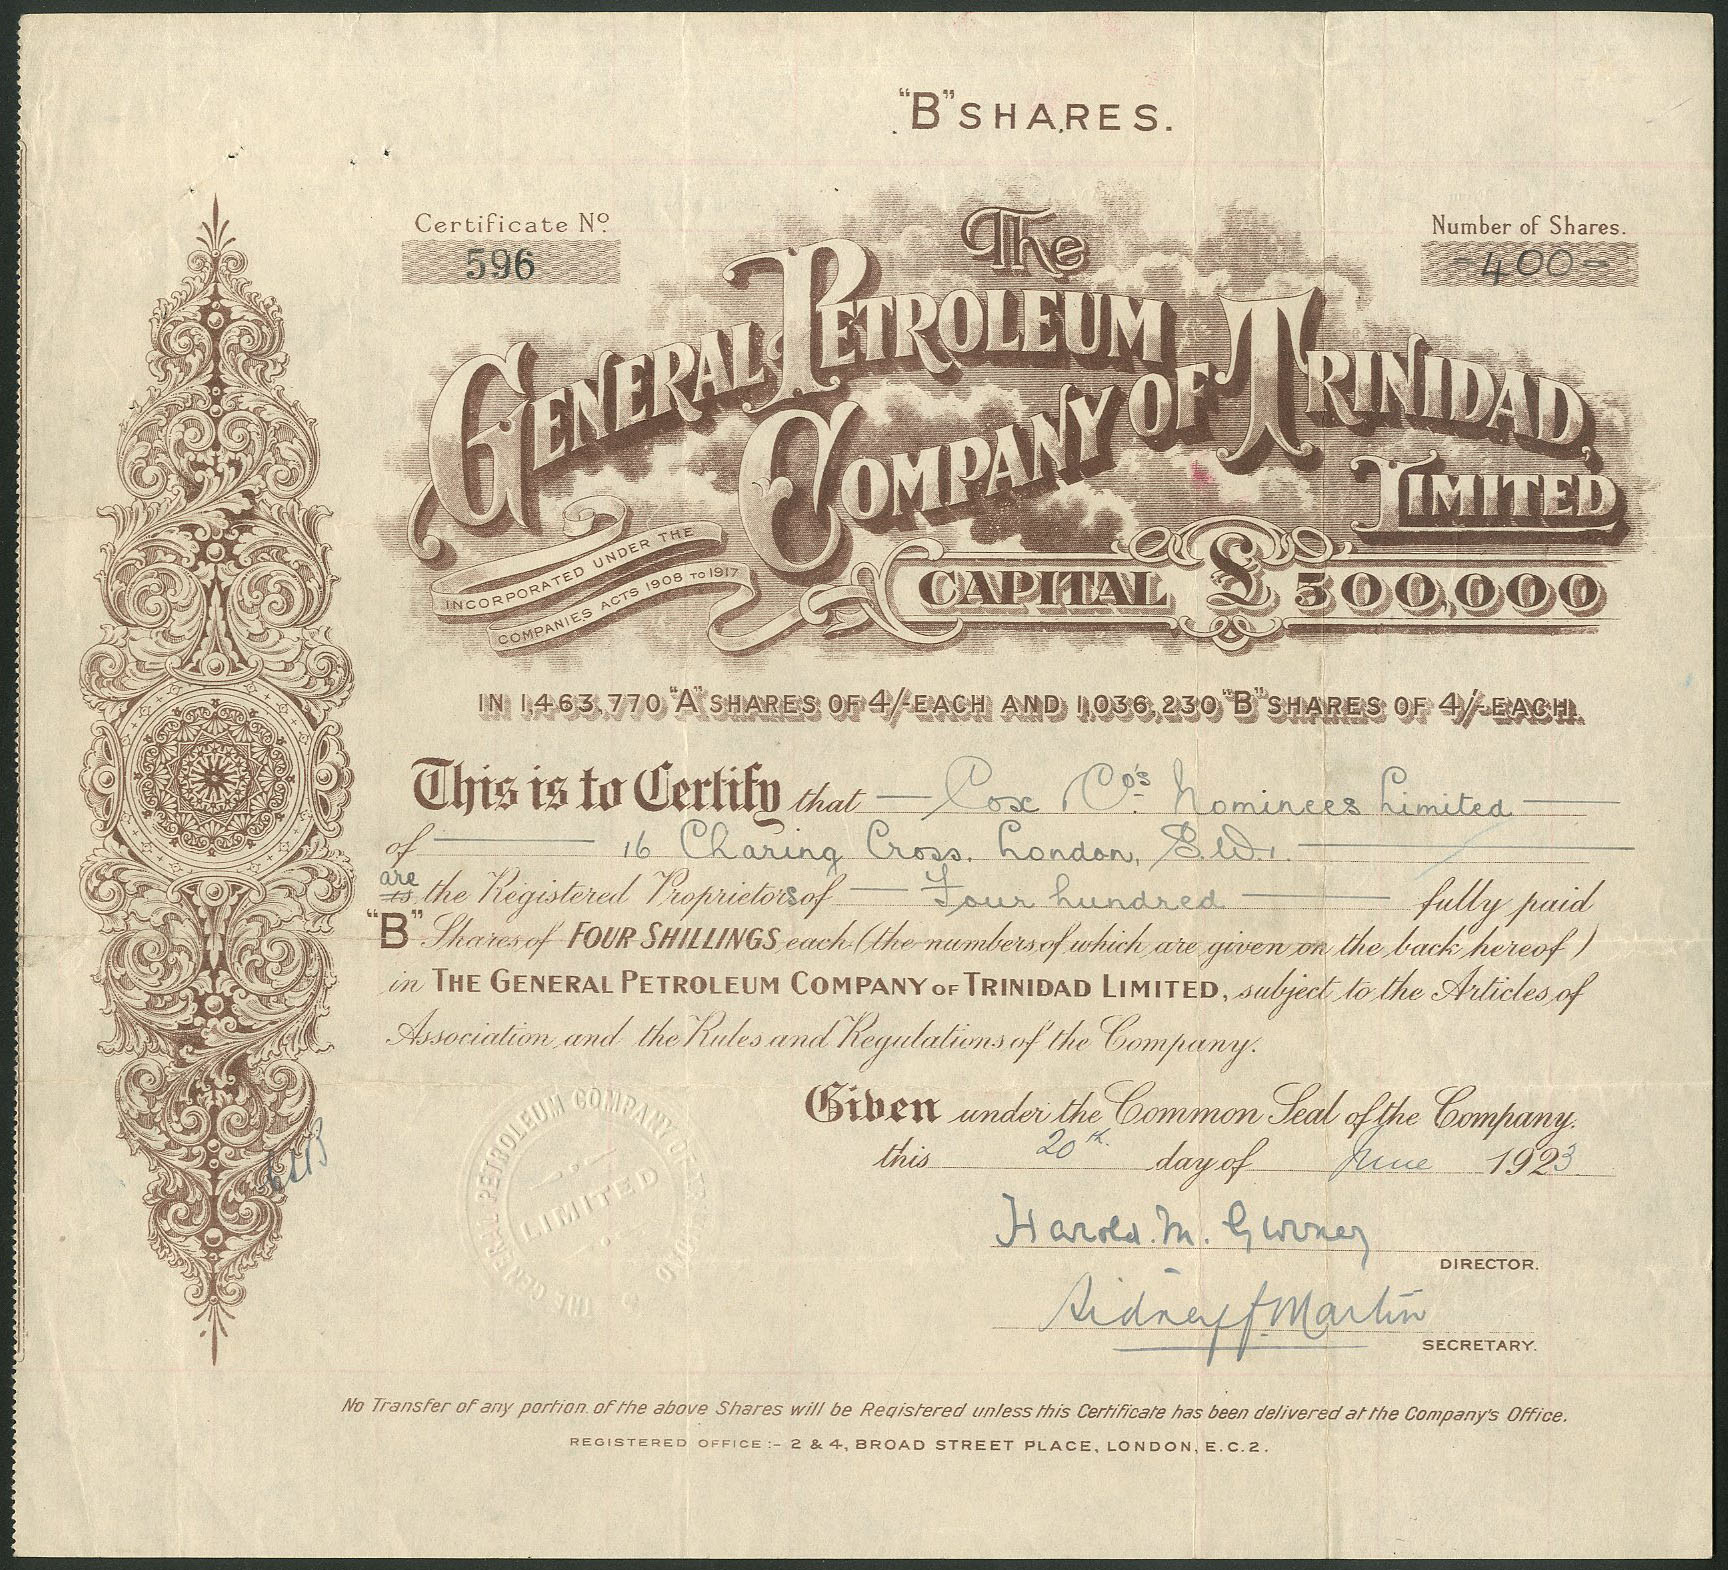 "B" SHARES.
Certificate No.
596
Number of Shares.
-400-
The
GENERAL PETROLEUM
COMPANY OF TRINIDAD,
LIMITED
INCORPORATED UNDER THE
COMPANIES ACTS 1908 TO 1917
CAPITAL £500,000
IN 1,463,770 "A" SHARES OF 4/- EACH AND 1,036,230 "B" SHARES OF 4/- EACH.
This is to Certify that Cox & Co's Nominees Limited
of 16 Charing Cross, London, S.W.1.
are
is the Registered Proprietors of Four hundred fully paid
"B" Shares of FOUR SHILLINGS each (the numbers of which are given on the back hereof)
in THE GENERAL PETROLEUM COMPANY OF TRINIDAD LIMITED, subject to the Articles of
Association and the Rules and Regulations of the Company.
Given under the Common Seal of the Company.
this 20th day of June 1923
Harold. M.
DIRECTOR.
Sidney J. Martin
SECRETARY.
THE GENERAL PETROLEUM COMPANY OF TRINIDAD
LIMITED
No Transfer of any portion of the above Shares will be Registered unless this Certificate has been delivered at the Company's Office.
REGISTERED OFFICE:- 2 & 4, BROAD STREET PLACE, LONDON, E.C.2.